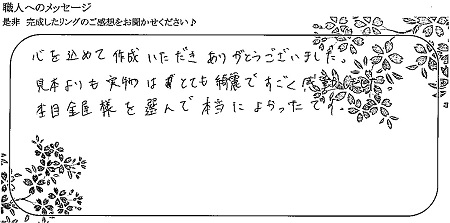 職人へのメッセージ
是非 完成したリングのご感想をお聞かせください♪
心を込めて作成いただきありがとうございました。
見本よりも実物はとても綺麗ですごく感
杢目金屋様を選んで本当によかったです。